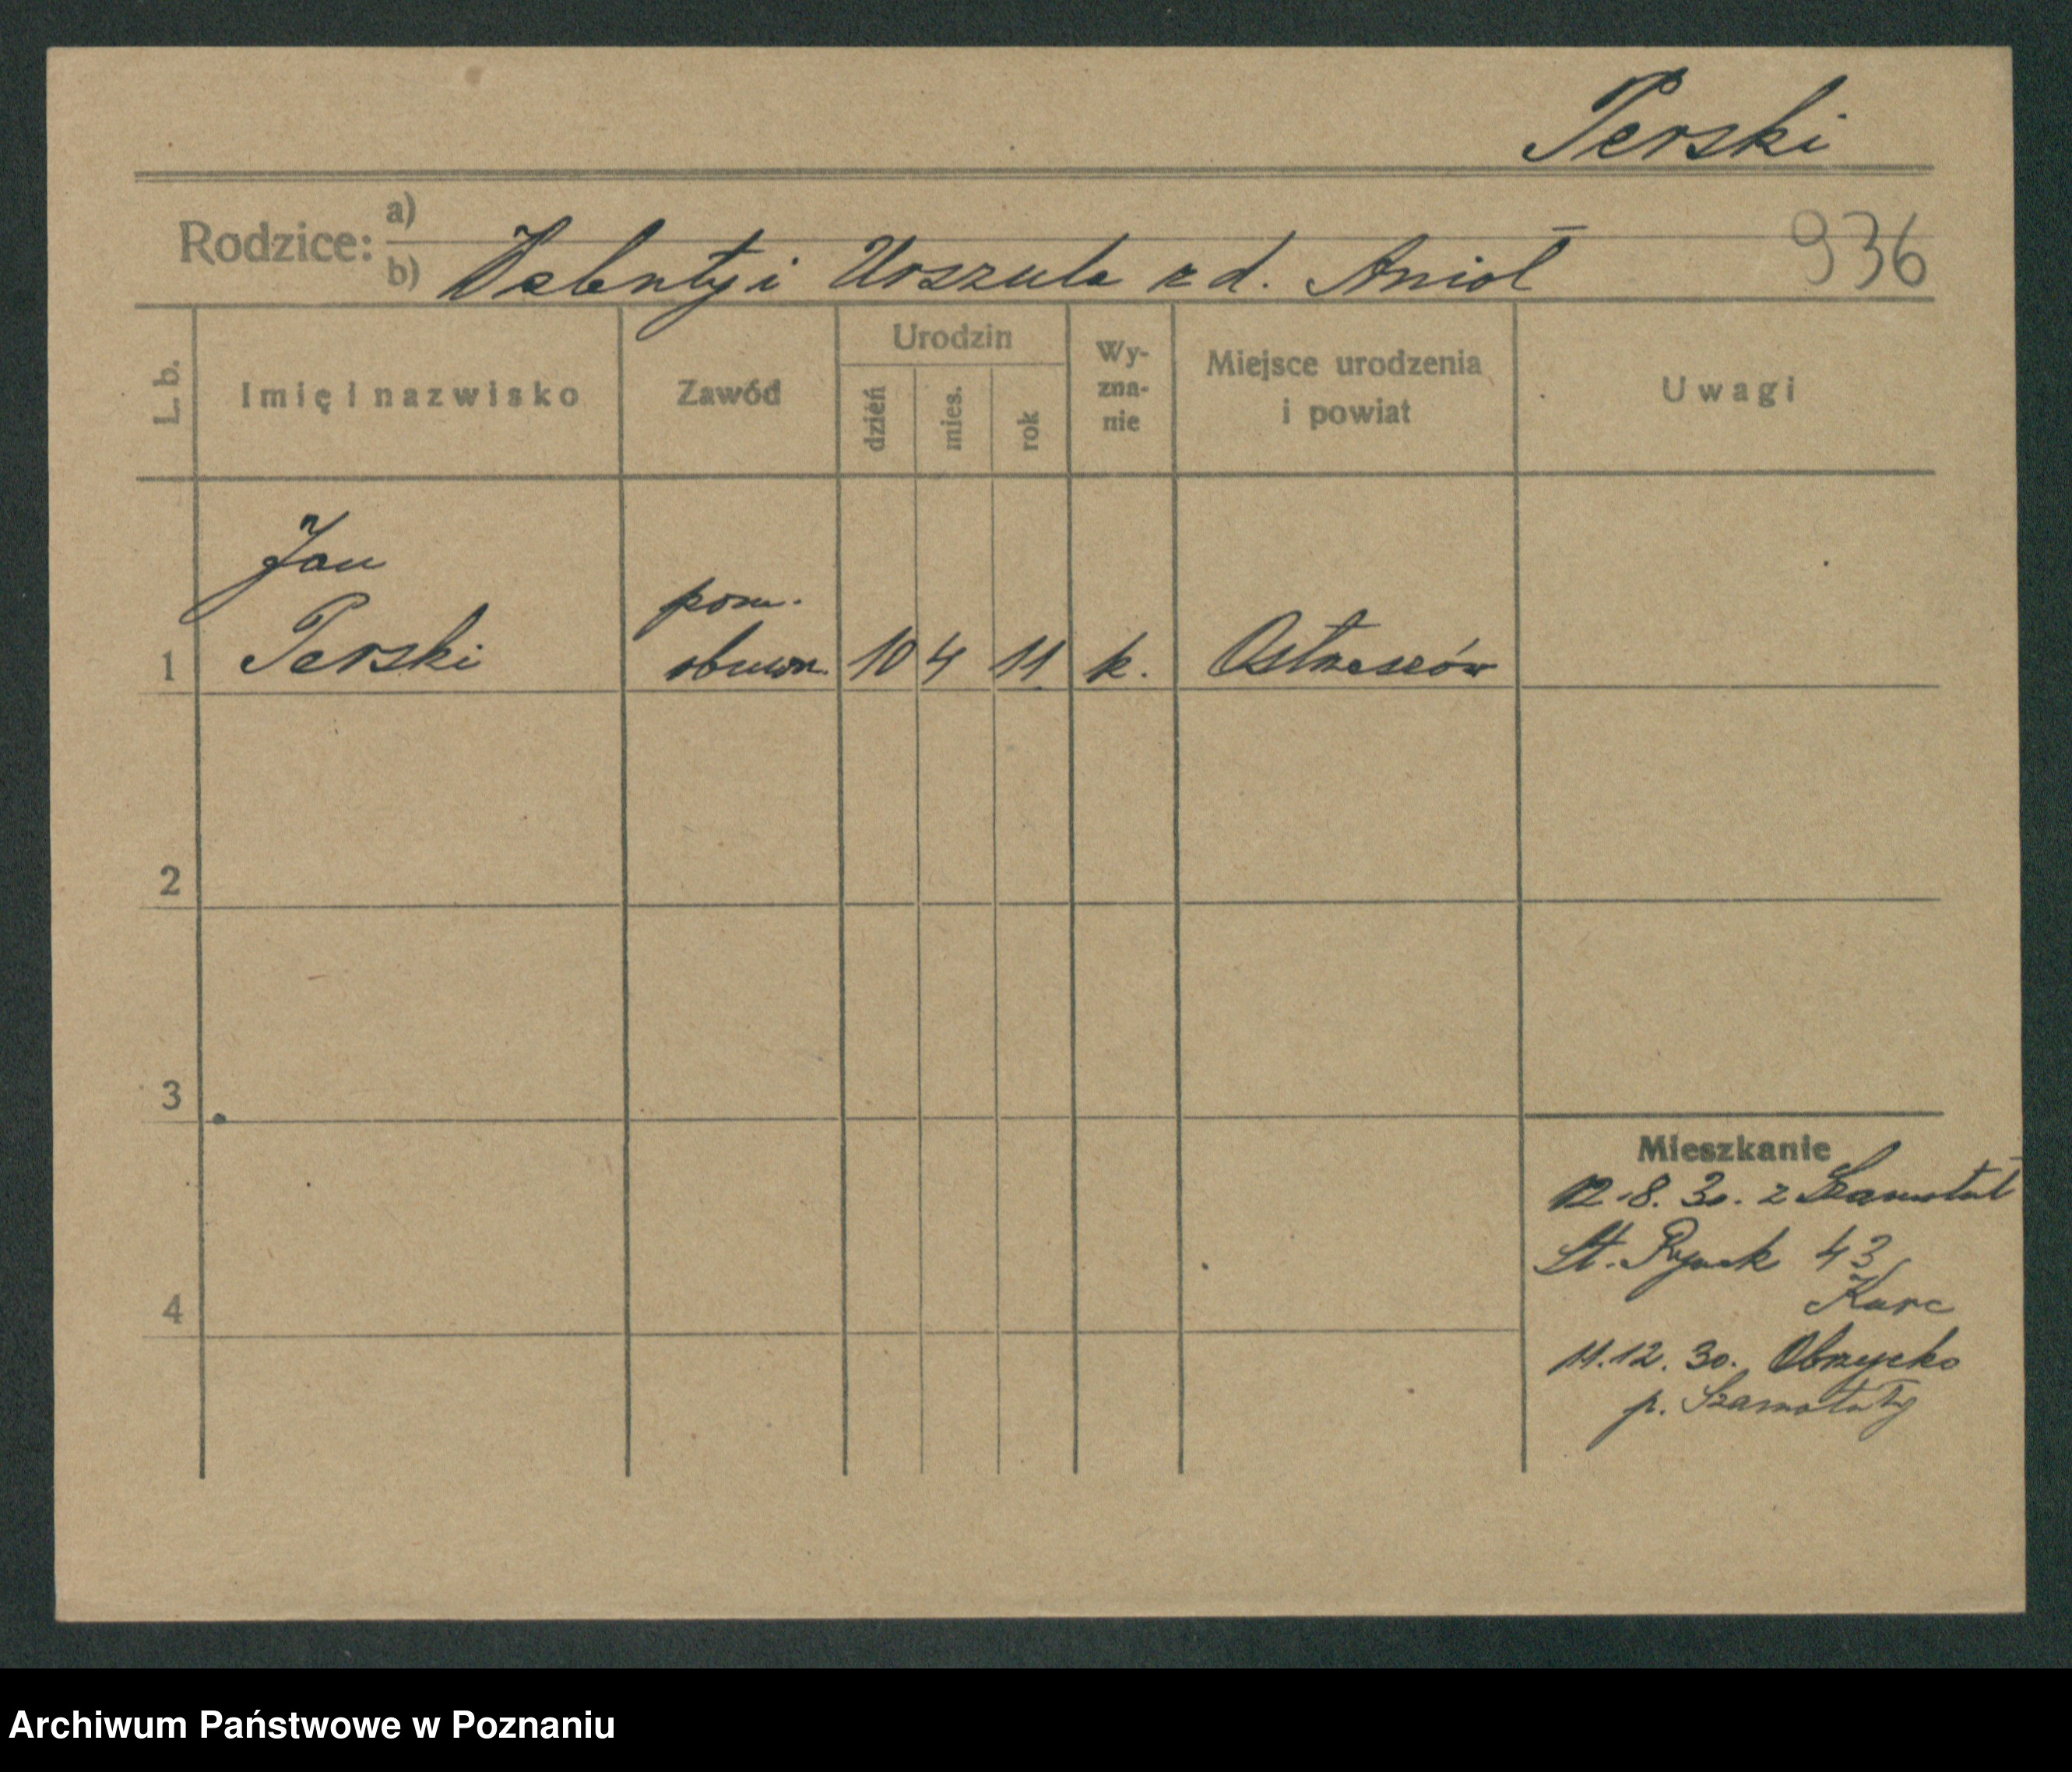 Perski
Rodzice: a)
b) Walenty i Urszula z d. Anioł
936
L. b.
Imię i nazwisko
Zawód
Urodzin
dzień
mies.
rok
Wy-
zna-
nie
Miejsce urodzenia
i powiat
Uwagi
Jan
pom.
1 Perski obuwn. 10 4 11 k. Ostrzeszów
2
3
4
Mieszkanie
12.8.30. z Szamotuł
St. Rynek 43
Kurc
11.12.30. Obrzycko
p. Szamotuły
Archiwum Państwowe w Poznaniu